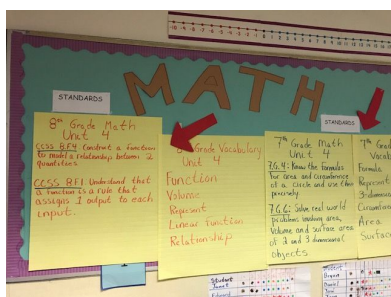 MATH
STANDARDS
8th Grade Math
Unit 4
CCSS 8.F.4 Construct a function
to model a relationship between 2
quantities
CCSS 8.F.1 Understand that
a function is a rule that
assigns 1 output to each
input.
Grade Vocabulary
Unit 4
Function
Volume
Represent
Linear Function
Relationship
STANDARDS
7th Grade Math
Unit 4
7.G.4: Know the formulas
for area and circumference
of a circle and use them
precisely.
7.G.6: Solve real world
problems involving area,
Volume and surface area
of 2 and 3 dimensional
objects
7th Grade
Vocab
Formula
Represent
3-dimension
Circumfere
Area
Surfac
Student
Student